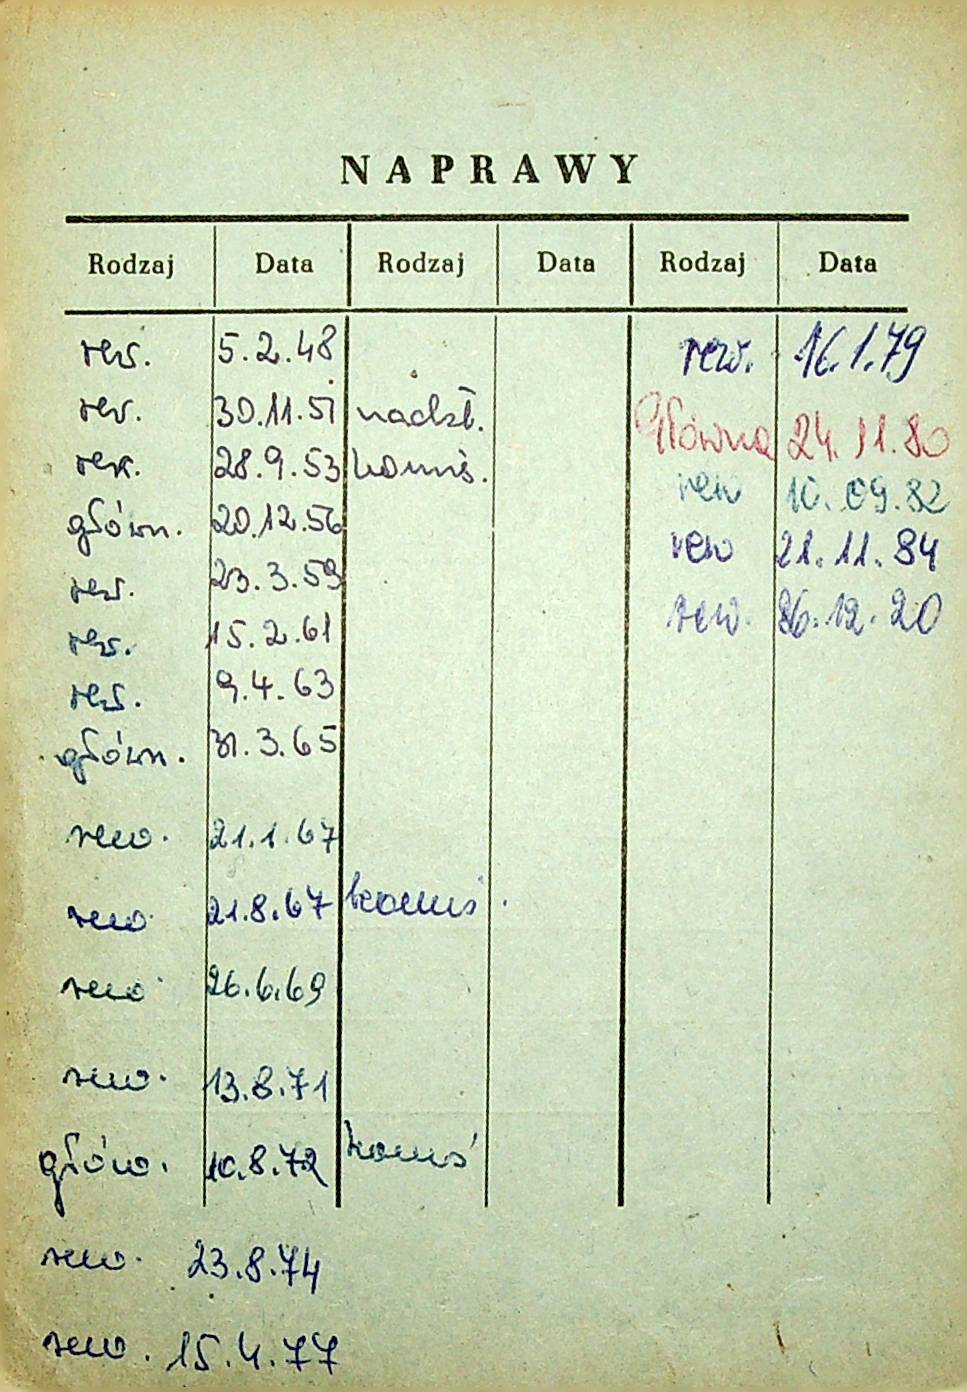 NAPRAWY
Rodzaj Data Rodzaj Data Rodzaj Data
rew. 5.2.48 rew. 16.1.79
rew. 30.11.51 nadzt. Główna 24.11.80
rew. 28.9.53 komis. rew 10.09.82
główn. 20.12.56 rew 21.11.84
rew. 23.3.59 rew. 86.12.20
rew. 15.2.61
rew. 9.4.63
główn. 31.3.65
rew. 21.1.67
rew 21.8.67 komis.
rew 26.6.69
rew. 13.8.71
głów. 10.8.72 komis
rew. 23.8.74
rew. 15.4.77